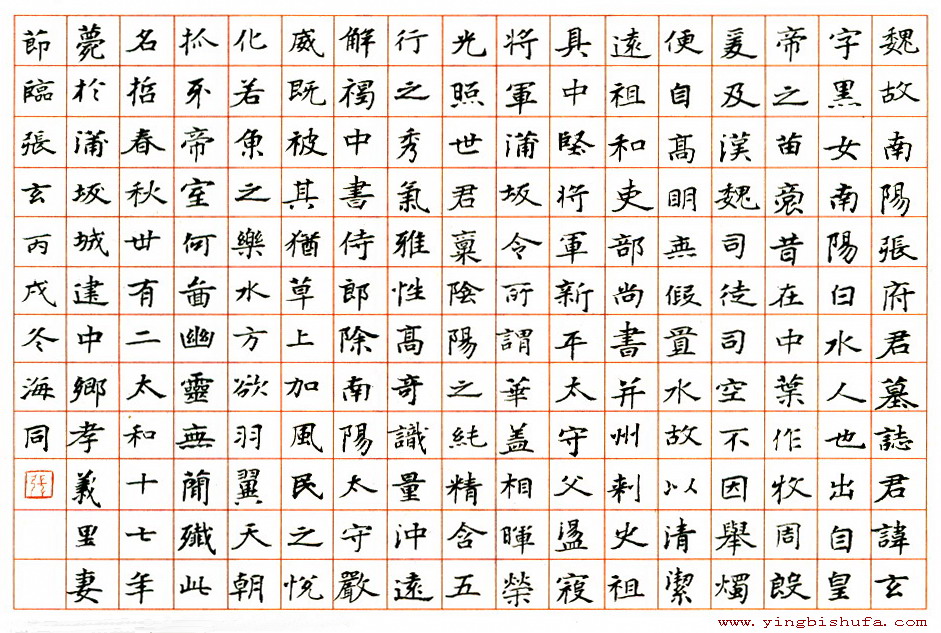 魏故南陽張府君墓誌君諱玄
字黑女南陽白水人也出自皇
帝之苗裔昔在中葉作牧周殷
爰及漢魏司徒司空不因舉燭
便自高明無假置水故以清潔
遠祖和吏部尚書并州刺史祖
具中堅將軍新平太守父盪寇
將軍蒲坂令所謂華盖相暉榮
光照世君稟陰陽之純精含五
行之秀氣雅性高奇識量沖遠
解褐中書侍郎除南陽太守嚴
威既被其猶草上加風民之悅
化若魚之樂水方欲羽翼天朝
抓牙帝室何啚幽靈無簡殲此
名哲春秋卅有二太和十七年
薨於蒲坂城建中鄉孝義里妻
節臨張玄丙戌冬海同
張
www.yingbishufa.com